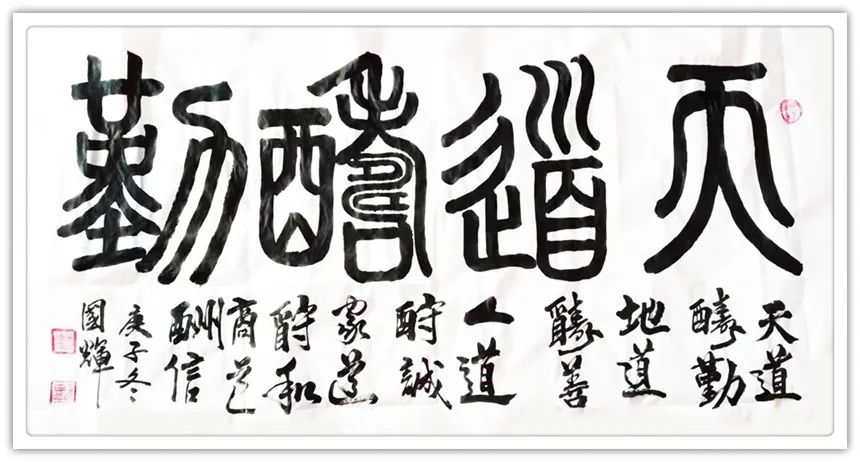 天道醻勤
天道
醻勤
地道
醻善
人道
酧誠
家道
酧和
商道
酬信
庚子冬
國輝